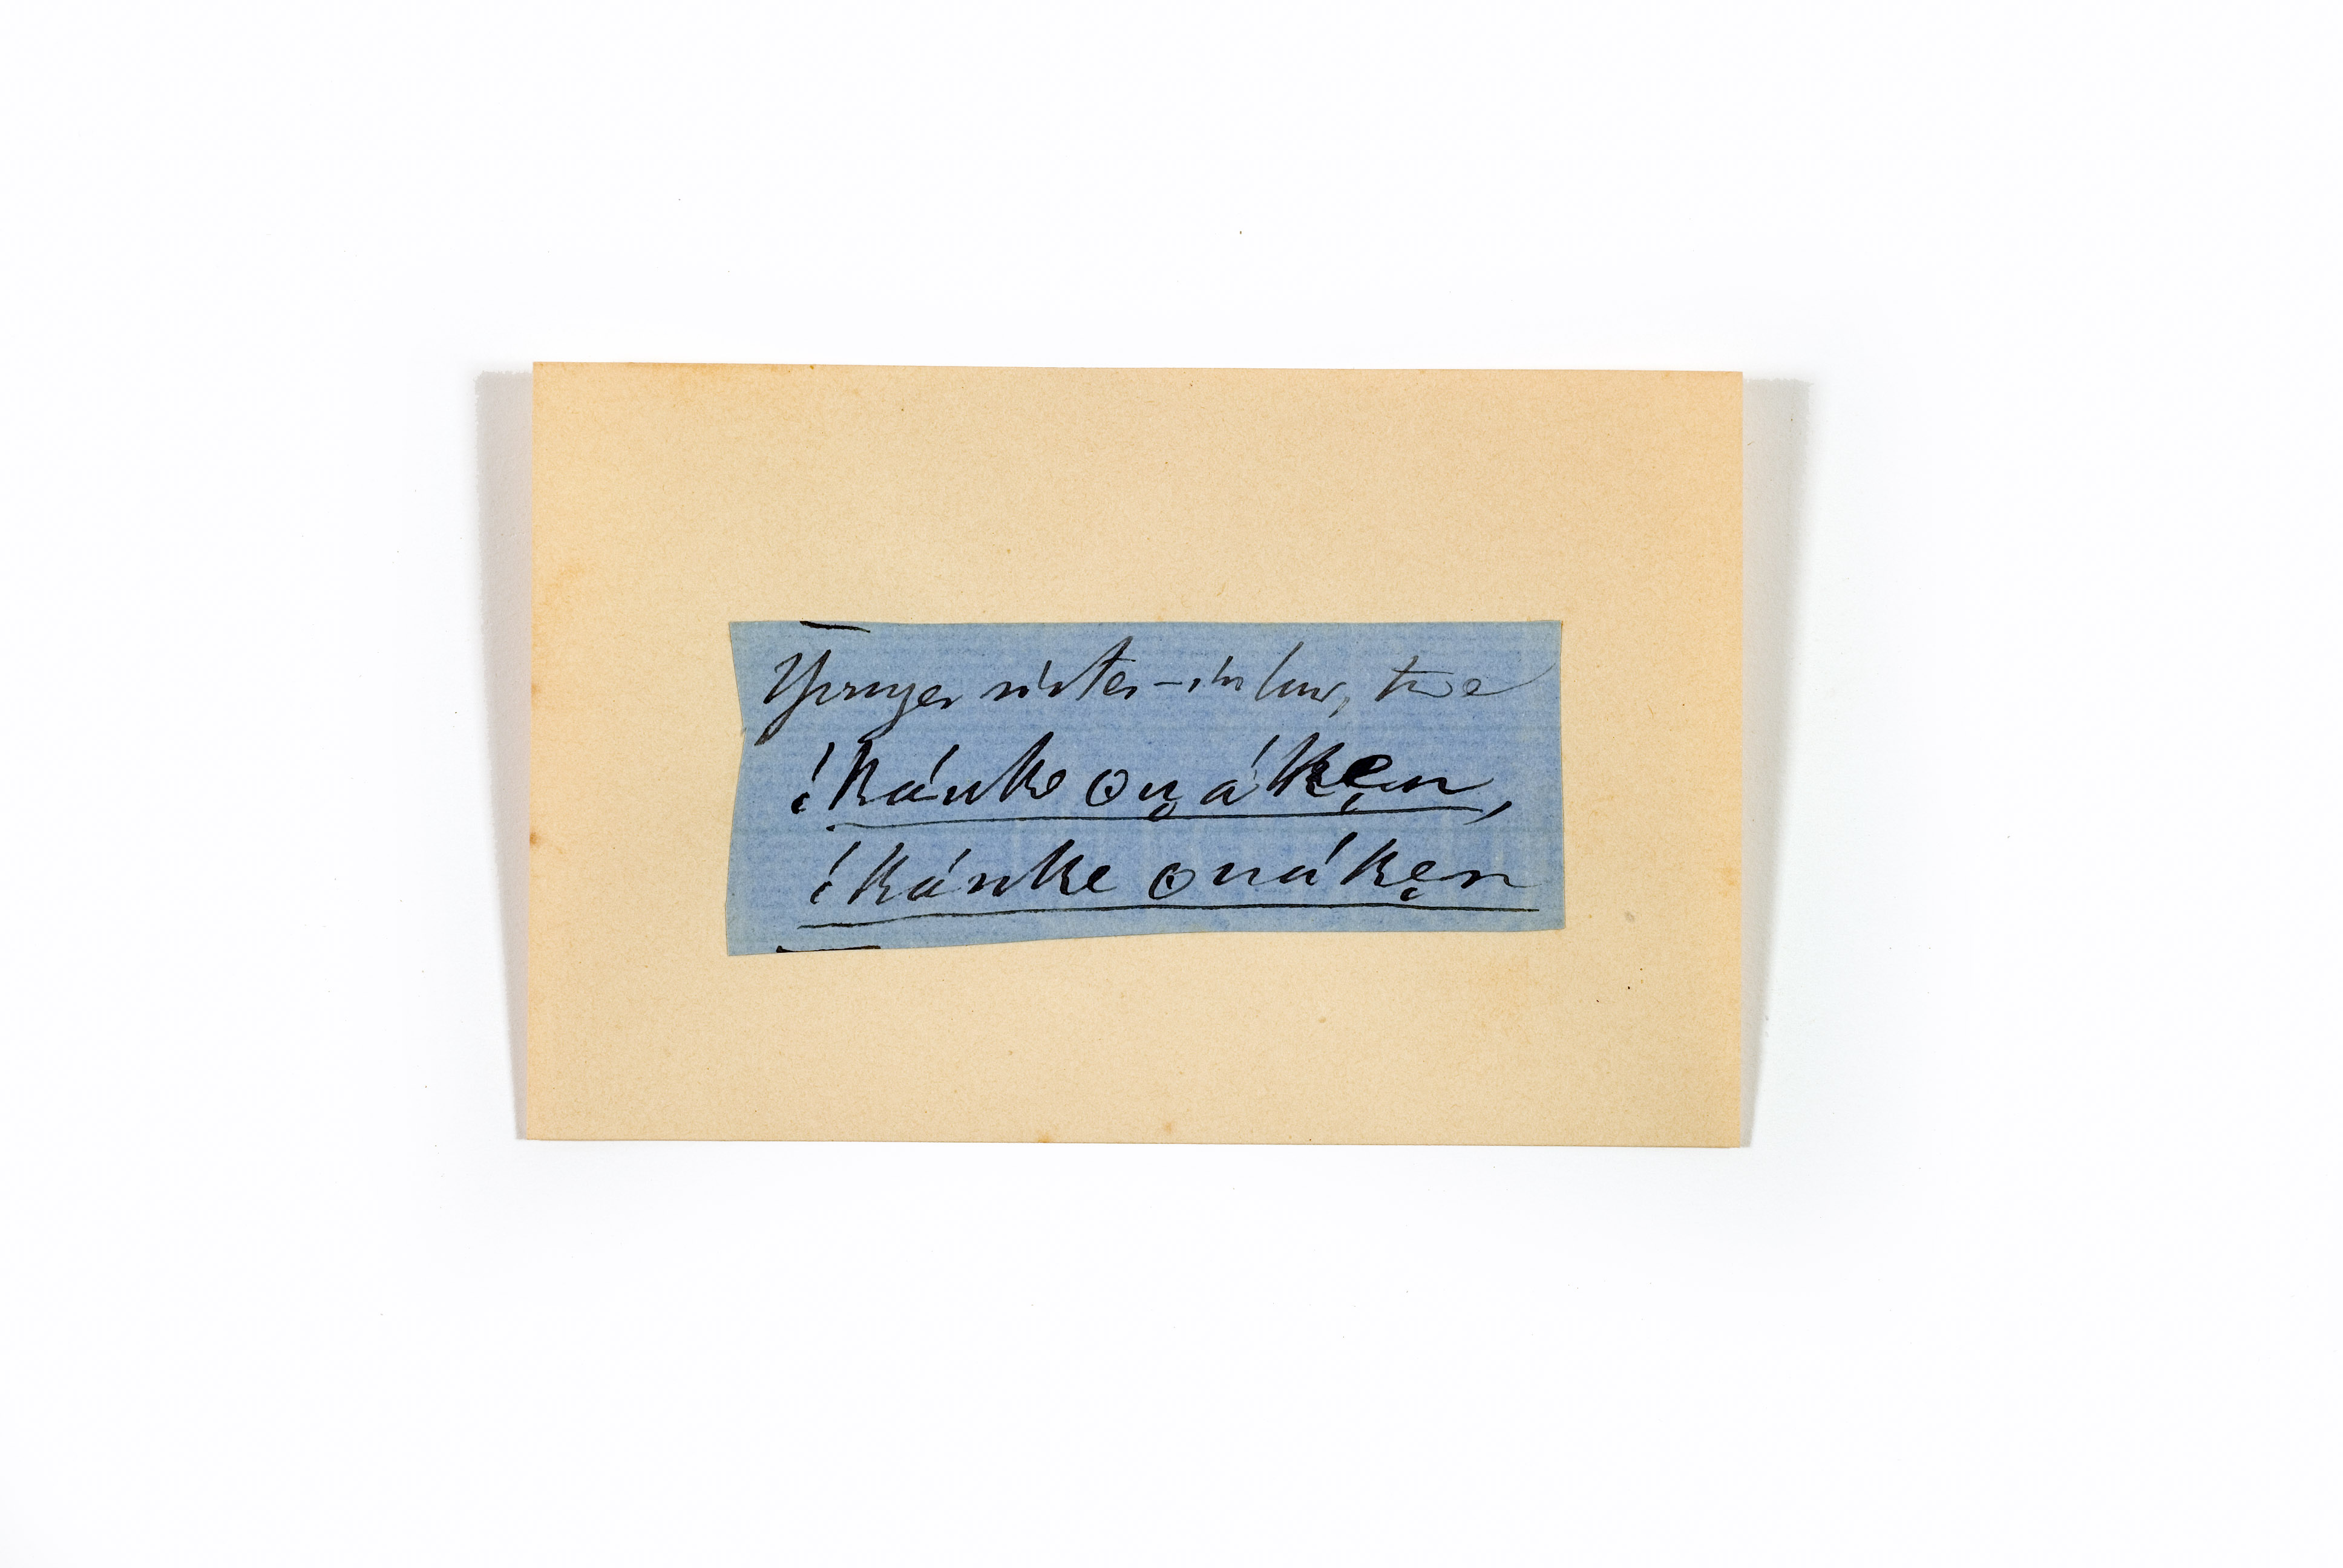 Younger sister-in law, two
!kánke ʘṇ̥á́kẹn,
!kánke ʘná́kẹn